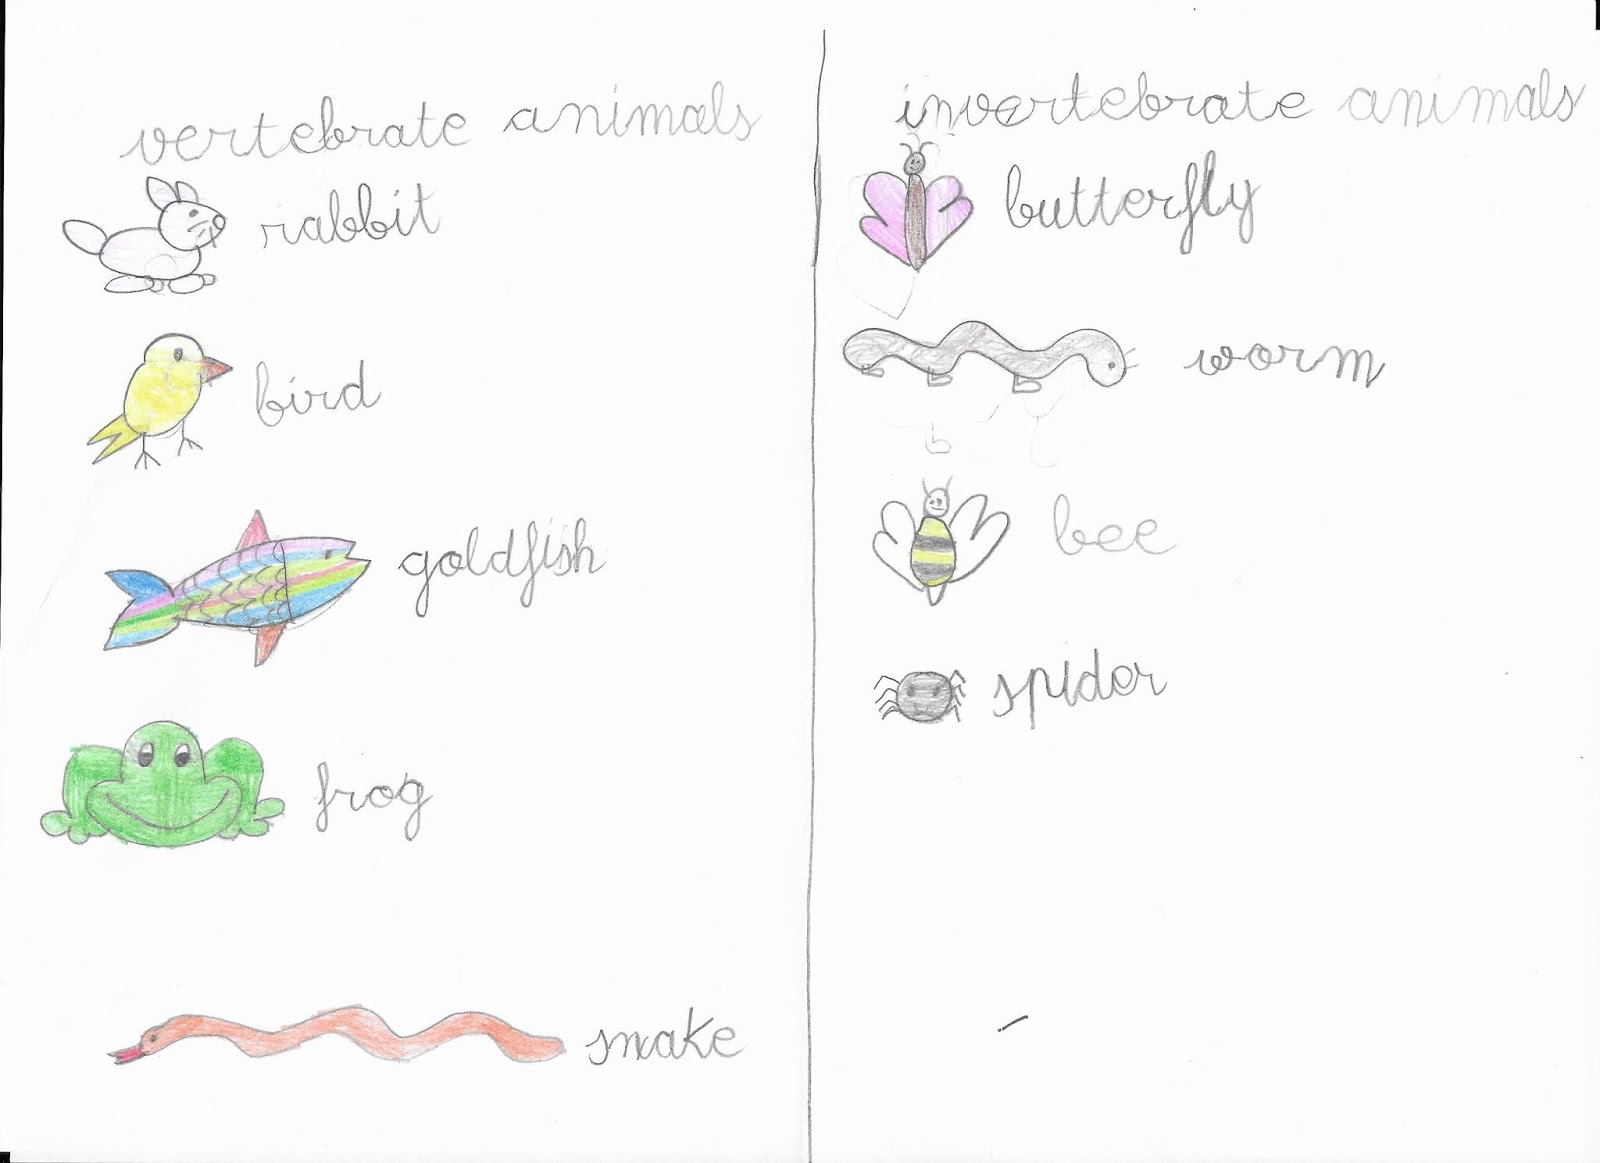 vertebrate animals
rabbit
bird
goldfish
frog
snake
invertebrate animals
butterfly
worm
bee
spider